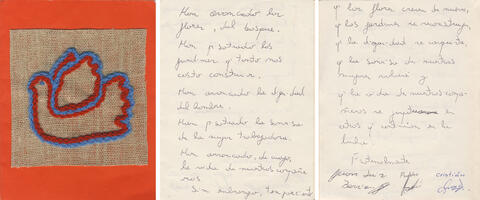 Han arrancado las
flores, del bosque.
Han pisoteado los
jardines y tanto nos
costó construir.
Han arrancado la dignidad
del hombre.
Han pisoteado la sonrisa
de la mujer trabajadora.
Han arrancado, de cuajo,
la vida de nuestros compañe
ros
Sin embargo, ten presente
y las flores crecen de nuevo,
y los jardines se reconstruyen,
y la dignidad se conquista,
y la sonrisa de nuestras
mujeres
y la vida de nuestros compa
ñeros se
otros y continúa en la
lucha.
Fraternalmente
cristián